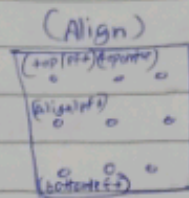 (Align)
(top left) (top center)
(align left)
(bottom left)